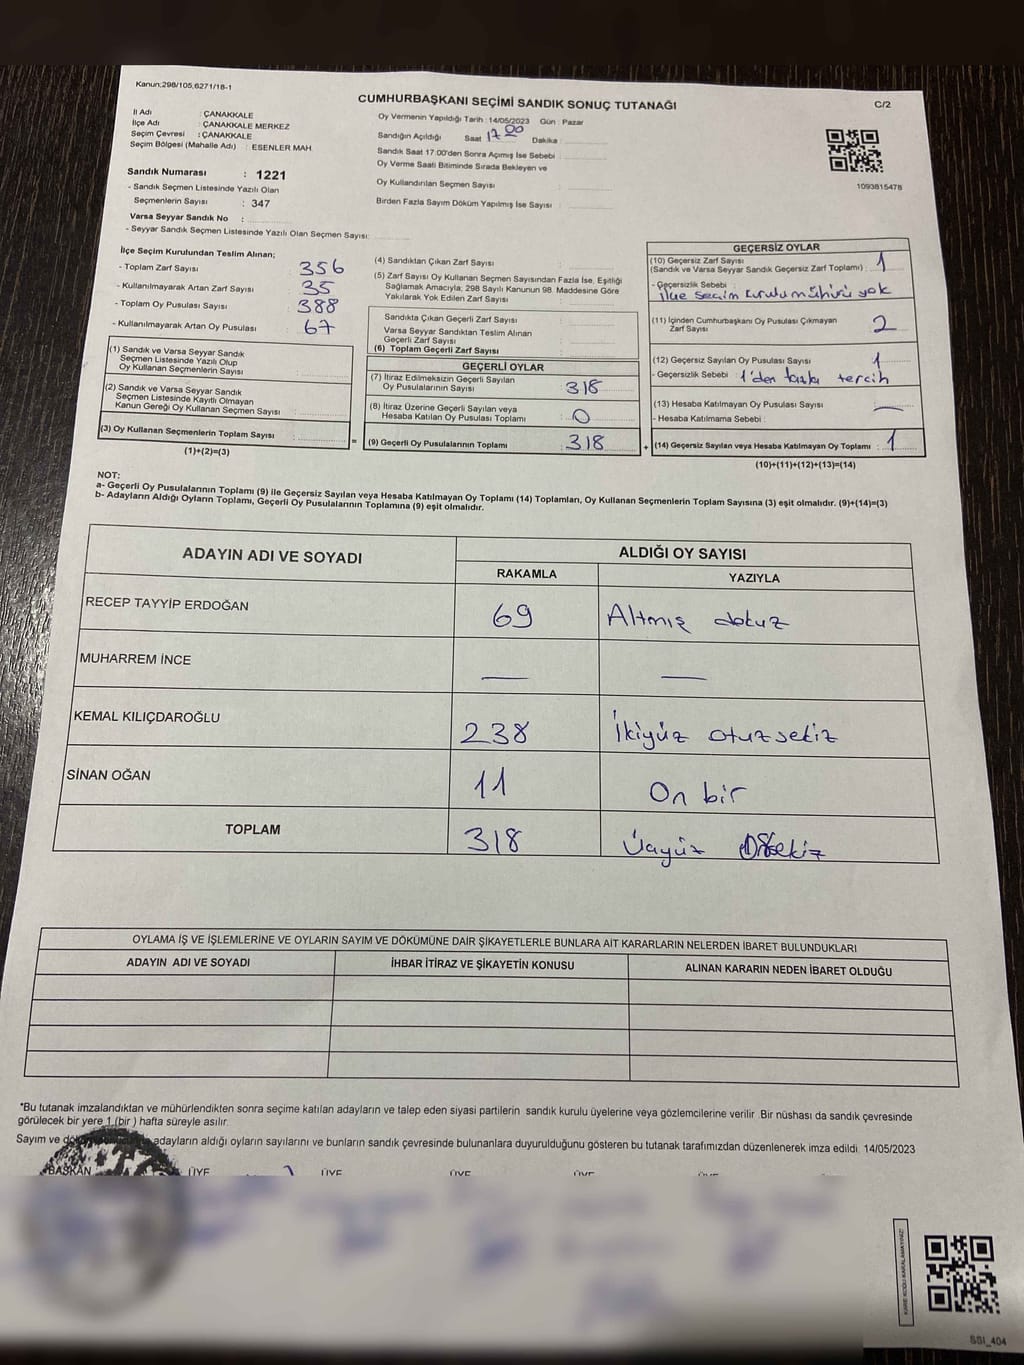 Kanun:298/105,6271/18-1
CUMHURBAŞKANI SEÇİMİ SANDIK SONUÇ TUTANAĞI
C/2
İl Adı : ÇANAKKALE
İlçe Adı : ÇANAKKALE MERKEZ
Seçim Çevresi : ÇANAKKALE
Seçim Bölgesi (Mahalle Adı) : ESENLER MAH.
Oy Vermenin Yapıldığı Tarih : 14/05/2023 Gün : Pazar
Sandığın Açıldığı Saat 17 00 Dakika :
Sandık Saat 17:00'den Sonra Açımış İse Sebebi :
Oy Verme Saati Bitiminde Sırada Bekleyen ve
Oy Kullandırılan Seçmen Sayısı :
Birden Fazla Sayım Döküm Yapılmış İse Sayısı :
1093815478
Sandık Numarası : 1221
- Sandık Seçmen Listesinde Yazılı Olan
Seçmenlerin Sayısı : 347
Varsa Seyyar Sandık No :
- Seyyar Sandık Seçmen Listesinde Yazılı Olan Seçmen Sayısı:
İlçe Seçim Kurulundan Teslim Alınan;
- Toplam Zarf Sayısı 356
- Kullanılmayarak Artan Zarf Sayısı : 35
- Toplam Oy Pusulası Sayısı : 388
- Kullanılmayarak Artan Oy Pusulası : 67
(1) Sandık ve Varsa Seyyar Sandık
Seçmen Listesinde Yazılı Olup
Oy Kullanan Seçmenlerin Sayısı :
(2) Sandık ve Varsa Seyyar Sandık
Seçmen Listesinde Kayıtlı Olmayan
Kanun Gereği Oy Kullanan Seçmen Sayısı :
(3) Oy Kullanan Seçmenlerin Toplam Sayısı :
(1)+(2)=(3)
(4) Sandıktan Çıkan Zarf Sayısı :
(5) Zarf Sayısı Oy Kullanan Seçmen Sayısından Fazla İse, Eşitliği
Sağlamak Amacıyla; 298 Sayılı Kanunun 98. Maddesine Göre
Yakılarak Yok Edilen Zarf Sayısı :
Sandıkta Çıkan Geçerli Zarf Sayısı :
Varsa Seyyar Sandıktan Teslim Alınan
Geçerli Zarf Sayısı :
(6) Toplam Geçerli Zarf Sayısı :
GEÇERLİ OYLAR
(7) İtiraz Edilmeksizin Geçerli Sayılan
Oy Pusulalarının Sayısı : 318
(8) İtiraz Üzerine Geçerli Sayılan veya
Hesaba Katılan Oy Pusulası Toplamı : 0
= (9) Geçerli Oy Pusulalarının Toplamı : 318
GEÇERSİZ OYLAR
(10) Geçersiz Zarf Sayısı
(Sandık ve Varsa Seyyar Sandık Geçersiz Zarf Toplamı) : 1
- Geçersizlik Sebebi :
ilçe seçim kurulu mührü yok
(11) İçinden Cumhurbaşkanı Oy Pusulası Çıkmayan
Zarf Sayısı : 2
(12) Geçersiz Sayılan Oy Pusulası Sayısı : 1
- Geçersizlik Sebebi : 1'den fazla tercih
(13) Hesaba Katılmayan Oy Pusulası Sayısı : —
- Hesaba Katılmama Sebebi :
+ (14) Geçersiz Sayılan veya Hesaba Katılmayan Oy Toplamı : 1
(10)+(11)+(12)+(13)=(14)
NOT:
a- Geçerli Oy Pusulalarının Toplamı (9) ile Geçersiz Sayılan veya Hesaba Katılmayan Oy Toplamı (14) Toplamları, Oy Kullanan Seçmenlerin Toplam Sayısına (3) eşit olmalıdır. (9)+(14)=(3)
b- Adayların Aldığı Oyların Toplamı, Geçerli Oy Pusulalarının Toplamına (9) eşit olmalıdır.
ADAYIN ADI VE SOYADI
ALDIĞI OY SAYISI
RAKAMLA YAZIYLA
RECEP TAYYİP ERDOĞAN 69 Altmış dokuz
MUHARREM İNCE — —
KEMAL KILIÇDAROĞLU 238 İkiyüz otuzsekiz
SİNAN OĞAN 11 On bir
TOPLAM 318 Üçyüz
OYLAMA İŞ VE İŞLEMLERİNE VE OYLARIN SAYIM VE DÖKÜMÜNE DAİR ŞİKAYETLERLE BUNLARA AİT KARARLARIN NELERDEN İBARET BULUNDUKLARI
ADAYIN ADI VE SOYADI İHBAR İTİRAZ VE ŞİKAYETİN KONUSU ALINAN KARARIN NEDEN İBARET OLDUĞU
*Bu tutanak imzalandıktan ve mühürlendikten sonra seçime katılan adayların ve talep eden siyasi partilerin sandık kurulu üyelerine veya gözlemcilerine verilir. Bir nüshası da sandık çevresinde
görülecek bir yere 1 (bir ) hafta süreyle asılır.
Sayım ve adayların aldığı oyların sayılarını ve bunların sandık çevresinde bulunanlara duyurulduğunu gösteren bu tutanak tarafımızdan düzenlenerek imza edildi. 14/05/2023
BAŞKAN ÜYE ÜYE ÜYE ÜYE ÜYE
KARE KODU KARALAMAYINIZ!
SSI_404